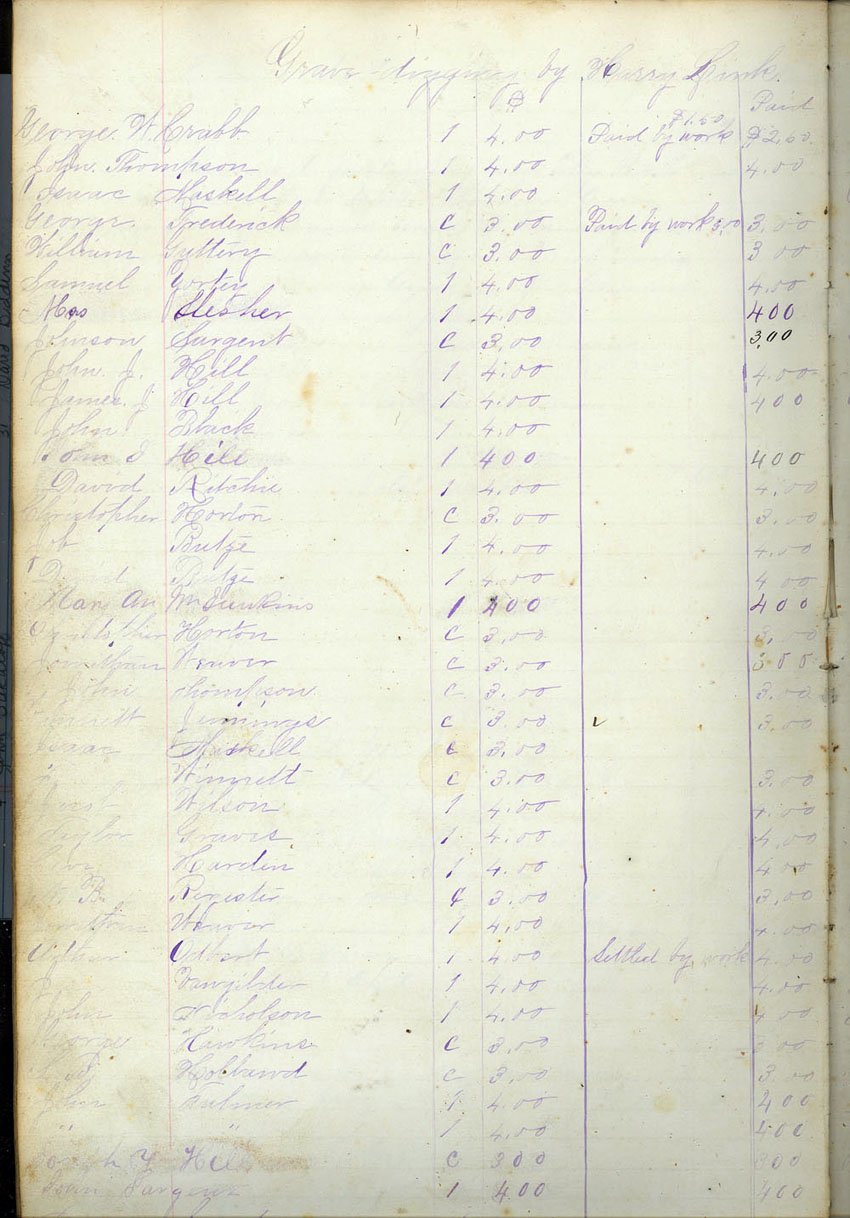 Grave digging by Harry Link.
$ Paid
George. W. Crabb 1 4.00 Paid by work $1.50 $2.50
John. Thompson 1 4.00 4.00
Isaac Haskell 1 4.00
George. Frederick C 3.00 Paid by work 3.00 3.00
William Guttery C 3.00 3 00
Samuel 1 4.00 4.00
Mrs Slesher 1 4.00 400
Johnson Sargent C 3.00 3.00
John. J. Hill 1 4.00 4.00
James. J Hill 1 4.00 400
John Black 1 4.00
John S Hill 1 400 400
David Ritchie 1 4.00 4.00
Christopher Horton C 3.00 3.00
Job Butze 1 4.00 4.00
David Butze 1 4.00 4 00
Mary An McJunkins 1 400 400
Christopher Horton C 3.00 3.00
Jonathan Weaver C 3.00 3 00
John Thompson C 3.00 3.00
Jennings C 3.00 ✓ 3.00
Isaac Haskell C 3.00
Winnett C 3.00 3.00
Wilson 1 4.00 4.00
Taylor Graves 1 4.00 4.00
Harden 1 4.00 4 00
B. Register C 3.00 3.00
Jonathan Weaver 1 4.00 4.00
Odbert 1 4.00 Settled by work 4.00
Vangilder 1 4.00 4.00
John Nicholson 1 4.00 4 00
George Hawkins C 3.00 3 00
C 3.00 3 00
John Fulmer 1 4.00 400
" " 1 4.00 400
Joseph Y Hill C 300 300
Sargent 1 400 400